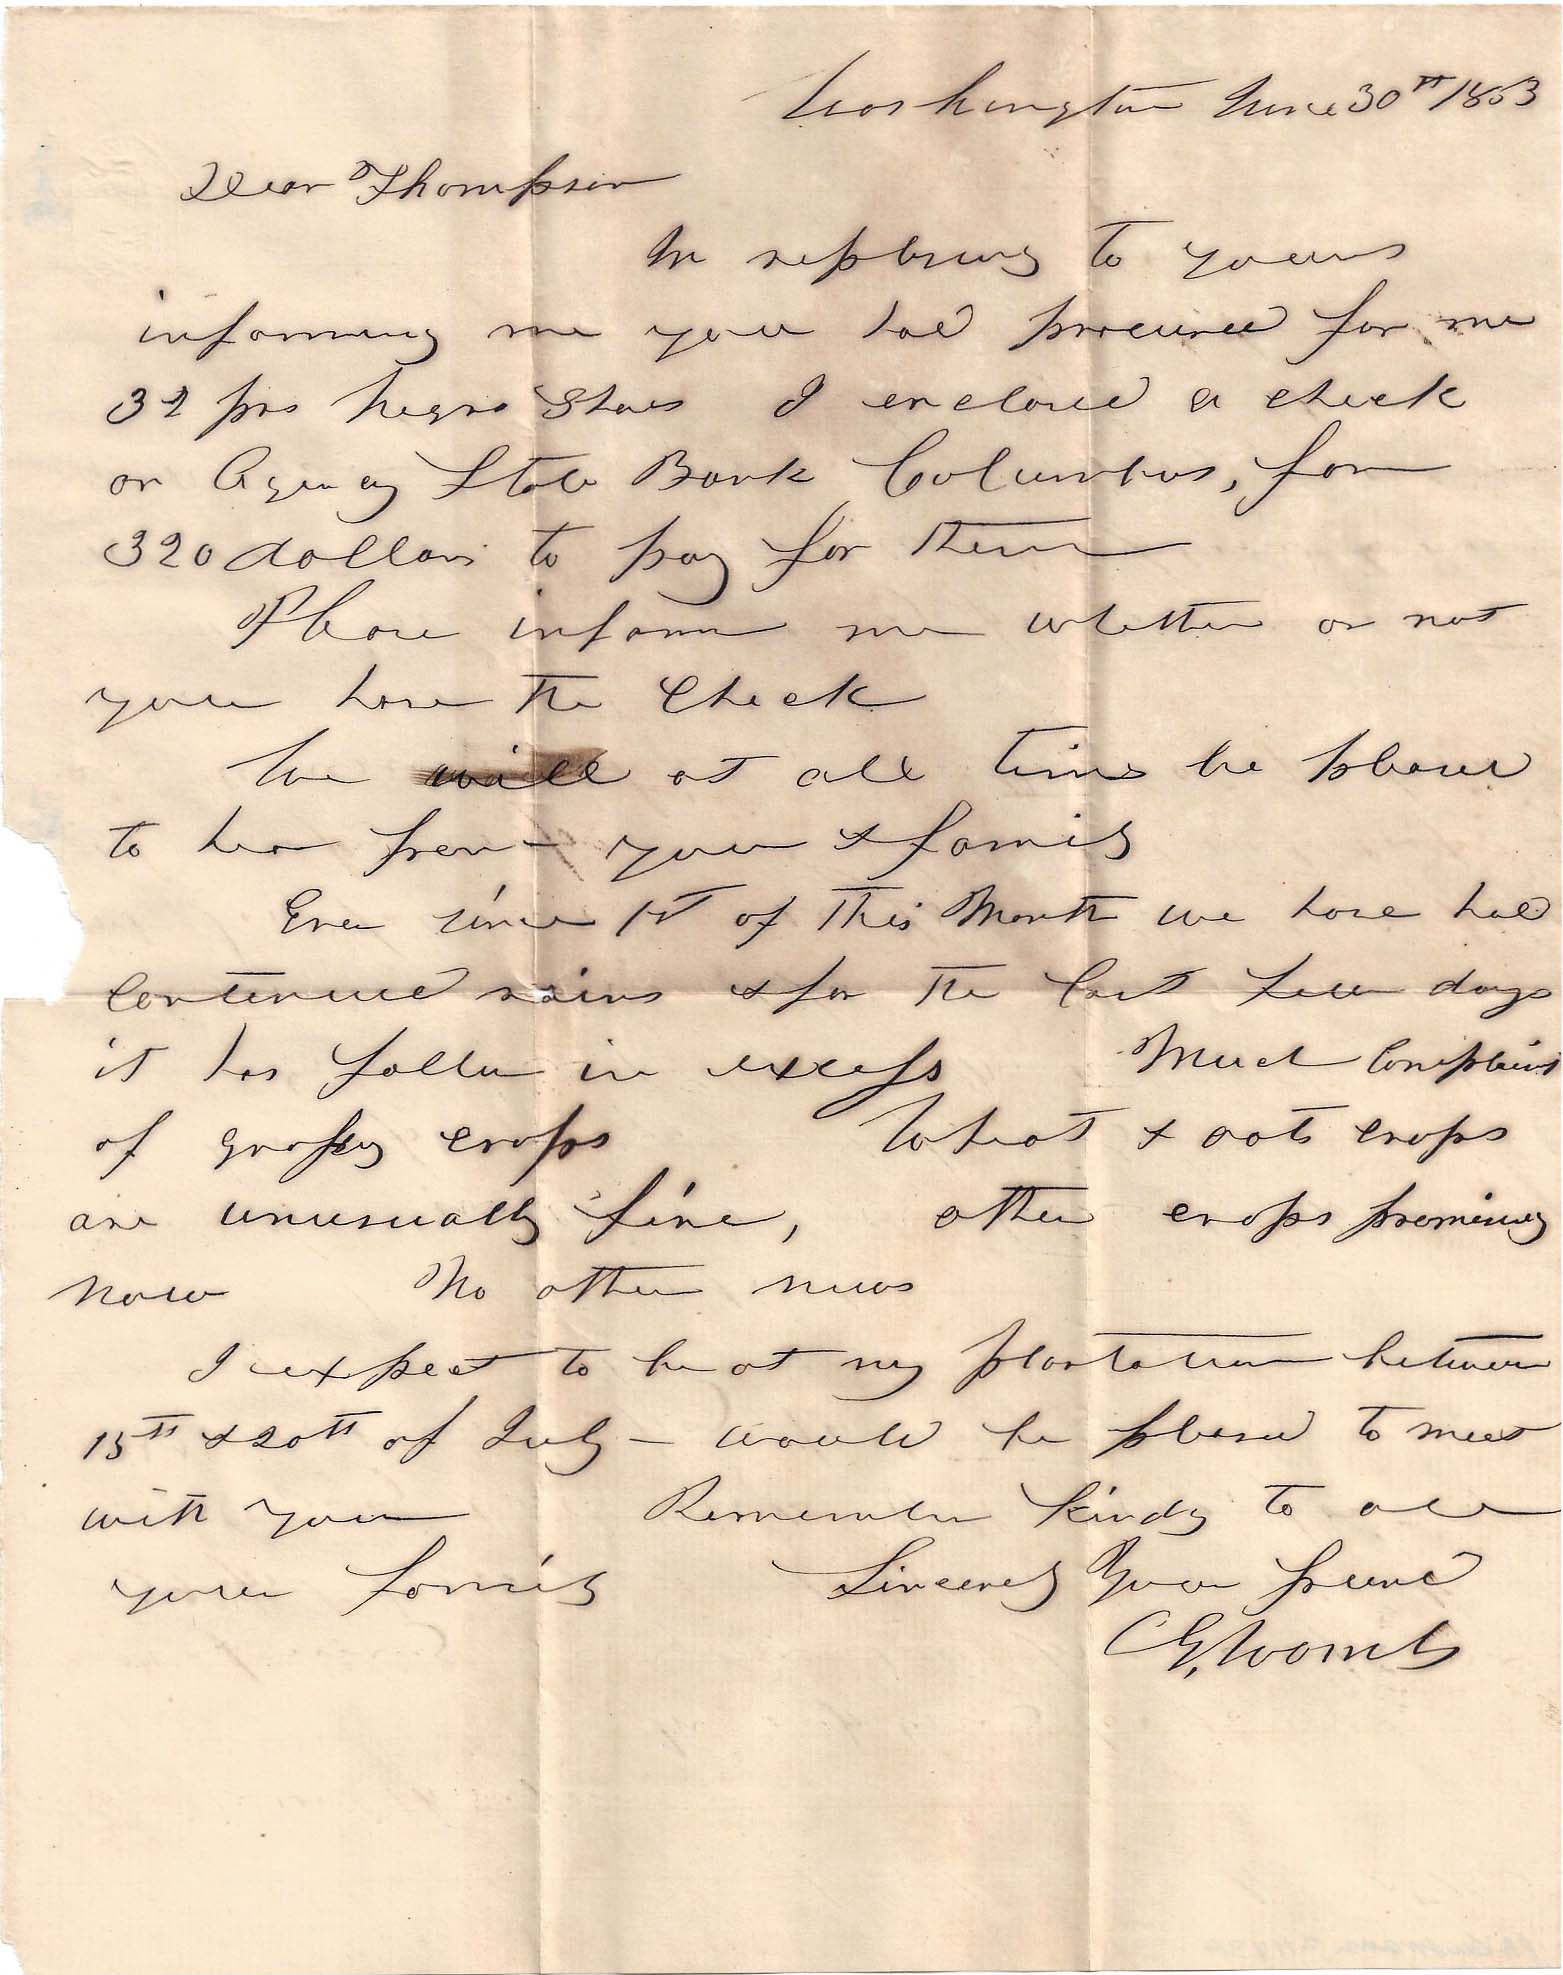 Washington June 30th 1853
Dear Thompson
In replying to yours
informing me you had procured for me
32 prs Negro Shoes I enclosed a check
on Agency State Bank Columbus, for
320 dollars to pay for them
Please inform me whether or not
you have the check
We will at all times be pleased
to hear from you & family
Ever since 1st of this Month we have had
continued rains & for the last few days
it has fallen in excess Much Complaint
of grassy crops Wheat & oats crops
are unusually fine, other crops promising
now No other news
I expect to be at my plantation between
15th & 20th of July – would be pleased to meet
with you Remember kindly to all
your family Sincerely Your friend